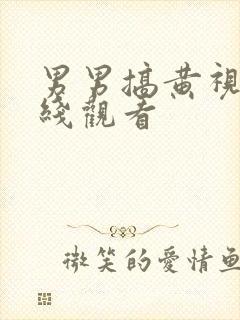 男男搞黄視
綫觀看
微笑的愛情魚